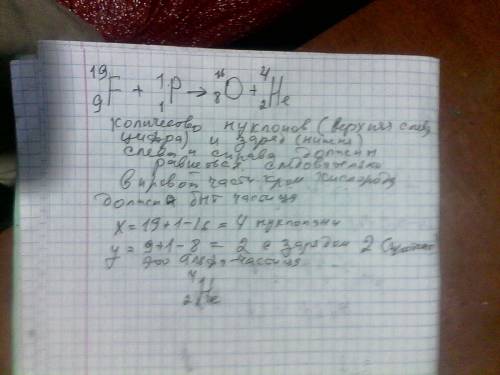 ¹⁹₉F + ¹₁P → ¹⁶₈O + ⁴₂He
количество нуклонов (верхняя слева
цифра) и заряд (нижняя)
слева и справа должны
равняться следовательно
в правой части кроме кислорода
должна быть частица
x = 19 + 1 - 16 = 4 нуклонами
y = 9 + 1 - 8 = 2 с зарядом 2
это альфа-частица
⁴₂He